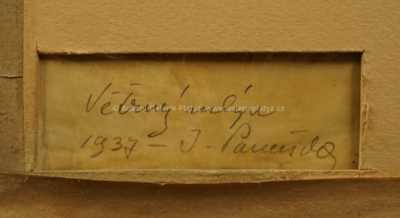 Větrný mlýn
1937 – J. Panuška